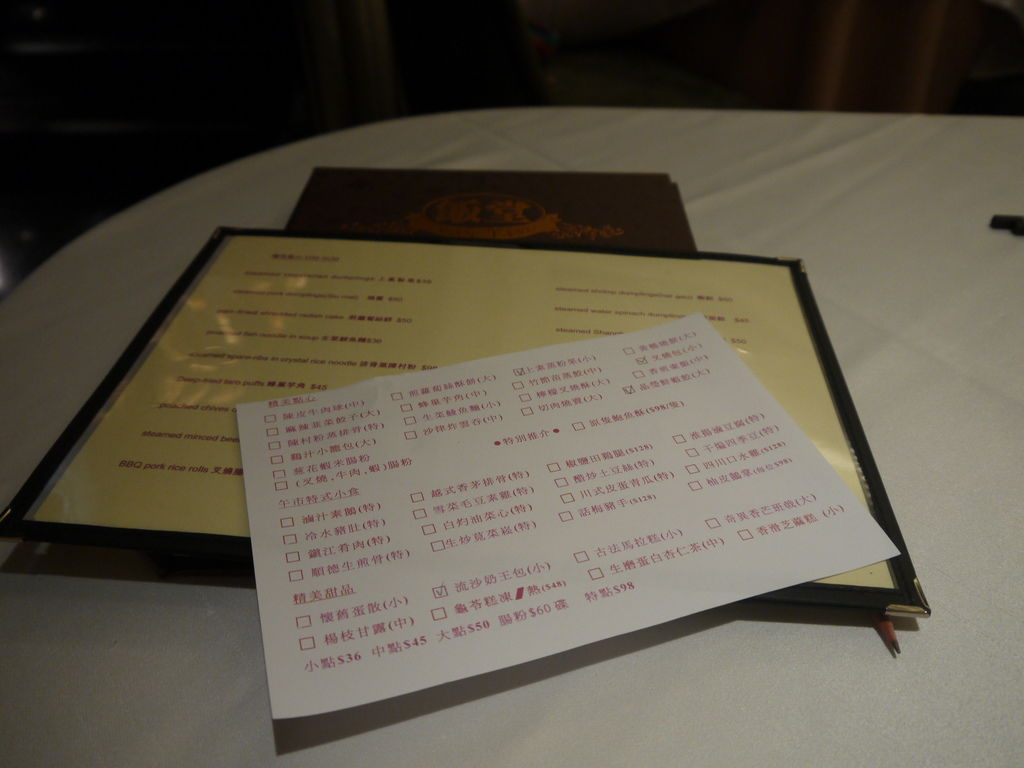 飯堂
steamed pork dumplings(siu mai) 燒賣 $50
pan-fried shredded radish cake
poached fish noodle in soup
steamed spare ribs in crystal rice noodle
Deep-fried taro puffs 蜂巢芋角 $45
poached chives
steamed minced beef
BBQ pork rice rolls 叉燒腸
steamed shrimp dumplings
steamed water spinach dumplings $45
steamed Shang
$50
精美點心
□ 陳皮牛肉球(中)
□ 麻辣韮菜餃子(大)
□ 陳村粉蒸排骨(特)
□ 鷄汁小籠包(大)
□ 葱花蝦米腸粉
□ (叉燒,牛肉,蝦)腸粉
□ 煎蘿蔔絲酥餅(大)
□ 蜂巢芋角(中)
□ 生菜鯪魚麵(小)
□ 沙律炸雲吞(中)
☑ 上素蒸粉果(小)
□ 竹笙苗蒸餃(中)
□ 檸檬叉燒酥(大)
□ 切肉燒賣(大)
☑ 叉燒包(小)
☑ 晶瑩鮮蝦餃(大)
●特別推介●
□ 原隻鮑魚酥($98/隻)
午市特式小食
□ 滷汁素鵝(特)
□ 冷水豬肚(特)
□ 鎮江肴肉(特)
□ 順德生煎骨(特)
□ 越式香茅排骨(特)
□ 雪菜毛豆素雞(特)
□ 白灼油菜心(特)
□ 生炒筧菜崧(特)
□ 椒鹽田鷄腿($128)
□ 醋炒土豆絲(特)
□ 川式皮蛋青瓜(特)
□ 話梅豬手($128)
□ 淮揚滷豆腐(特)
□ 干煸四季豆(特)
□ 四川口水雞($128)
□ 柚皮鵝掌(每位$98)
精美甜品
□ 懷舊蛋散(小)
□ 楊枝甘露(中)
☑ 流沙奶王包(小)
□ 龜苓糕凍/熱($48)
□ 古法馬拉糕(小)
□ 生磨蛋白杏仁茶(中)
□ 奇異香芒班戟(大)
□ 香滑芝麻糕(小)
小點$36 中點$45 大點$50 腸粉$60 碟 特點$98